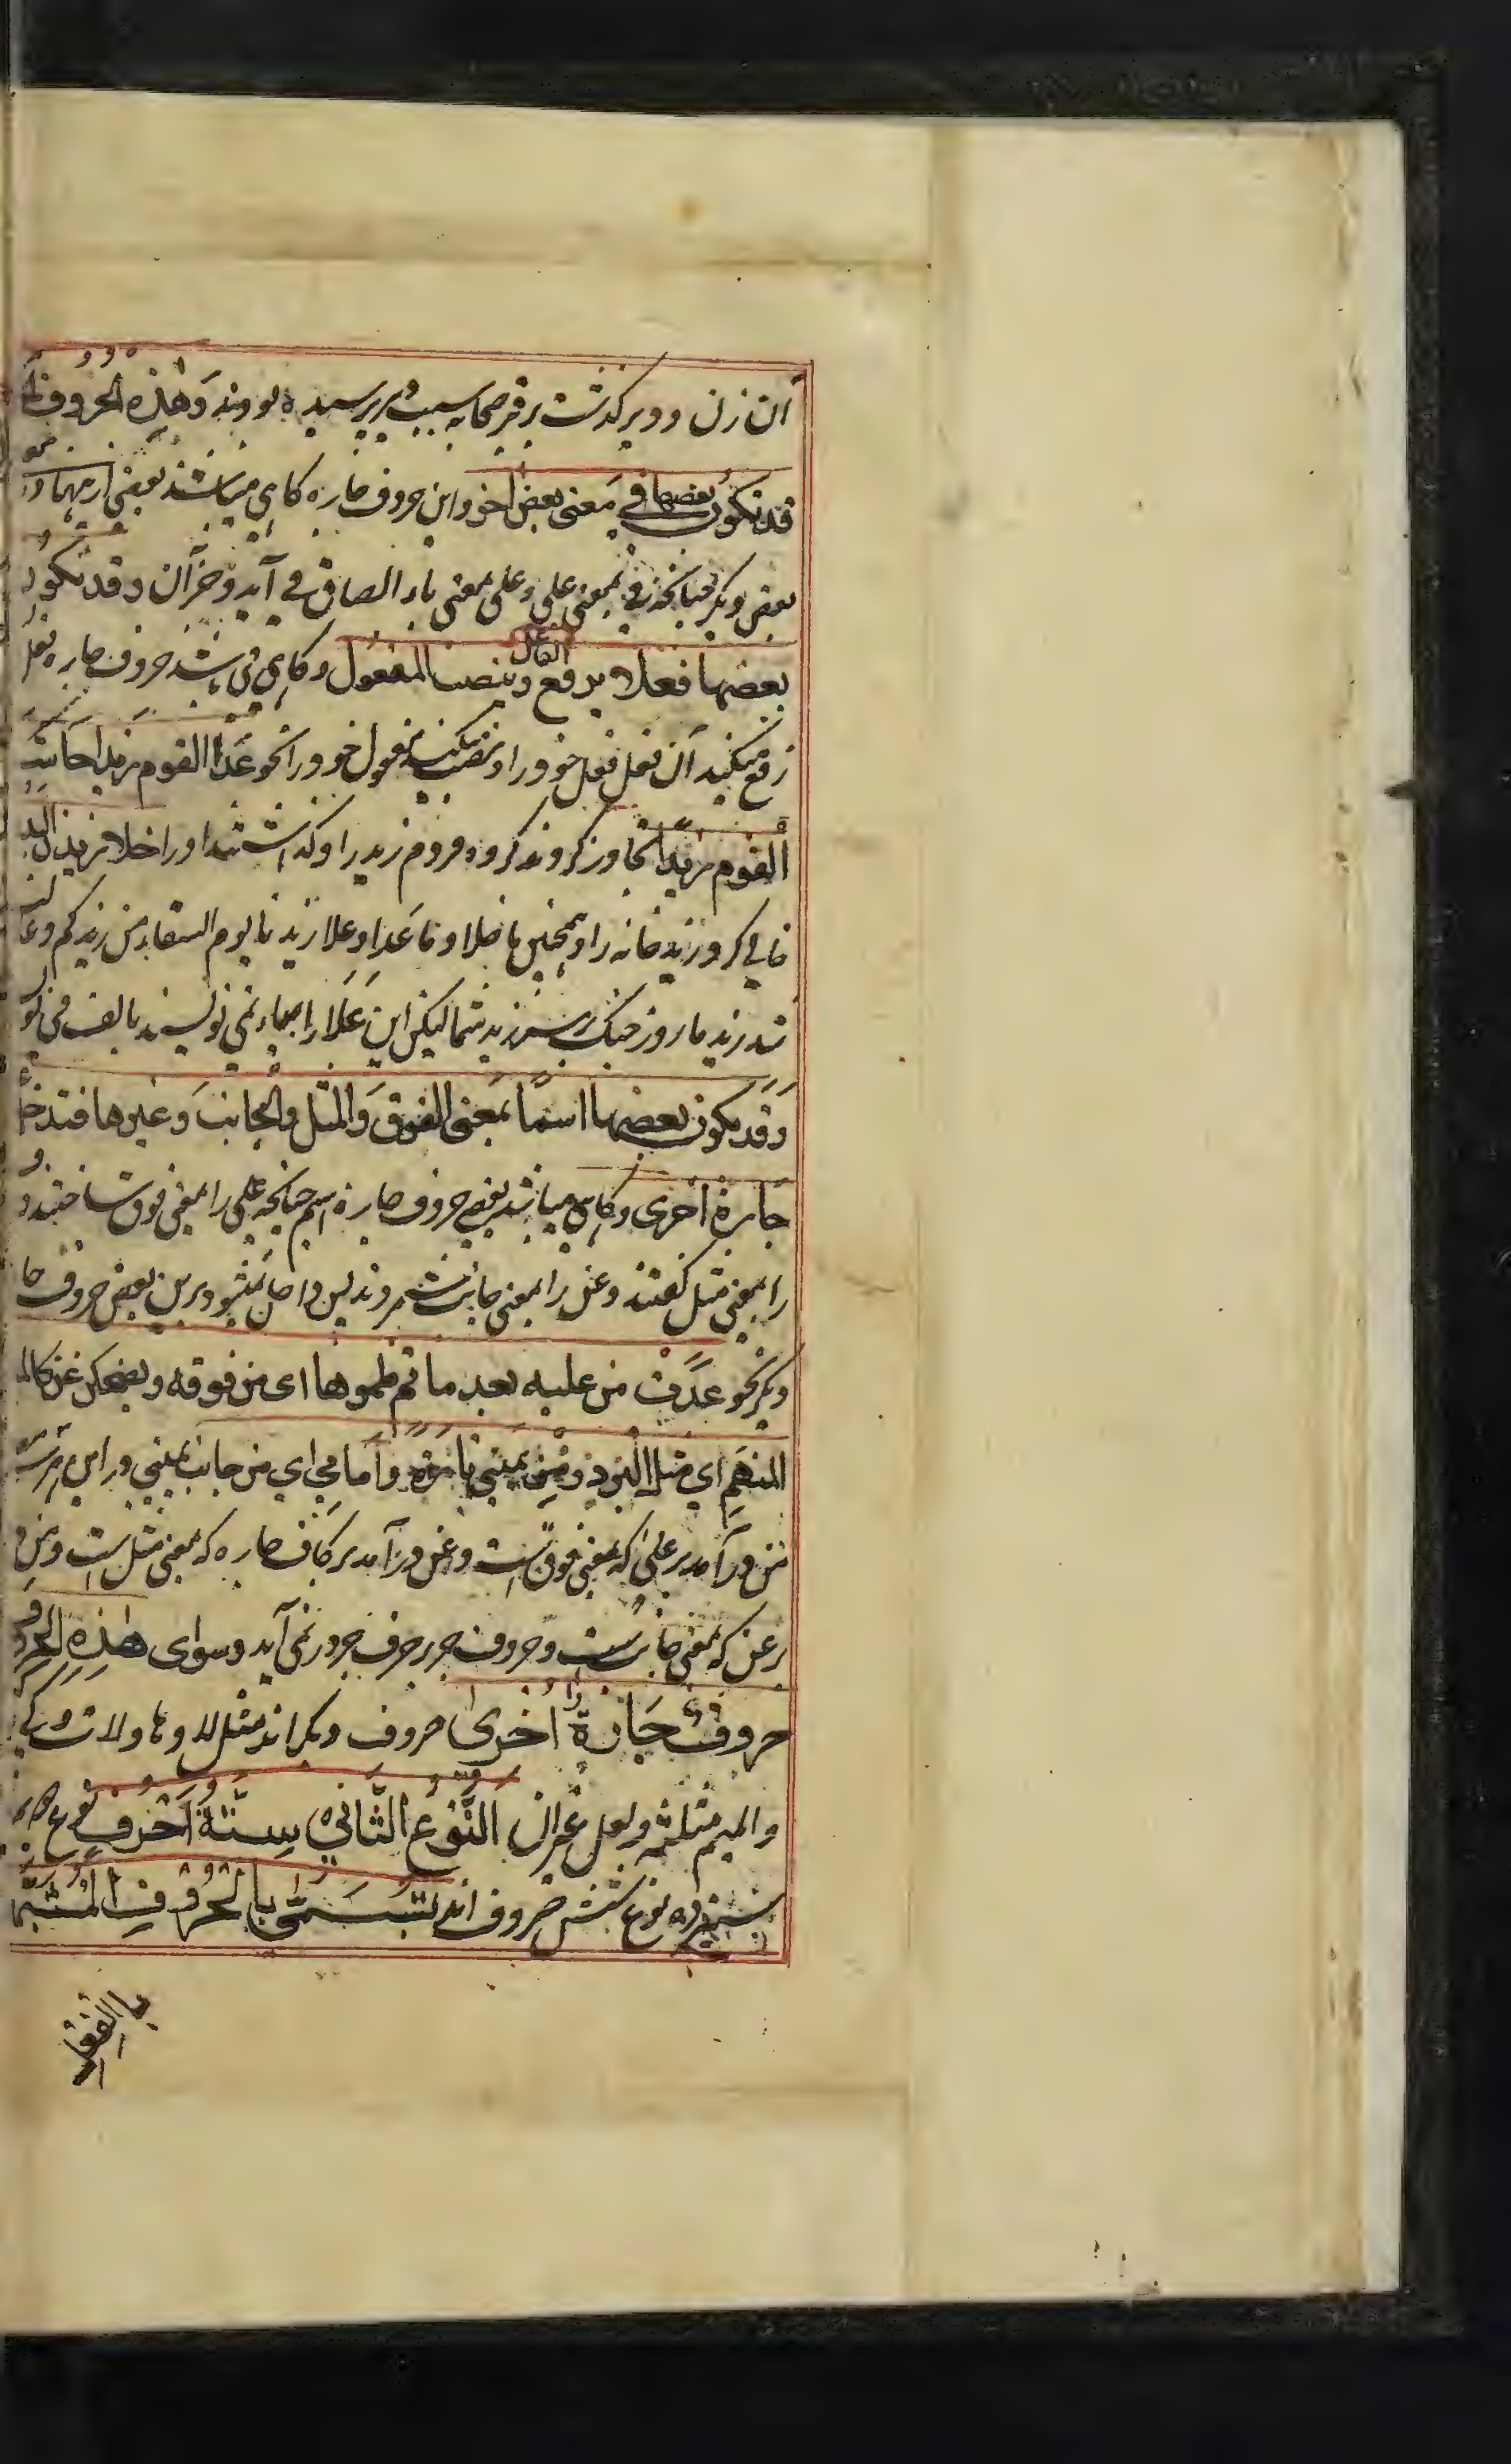 ان زن و دیر گذشت بر قبر صحابه سبب دیر پرسیده بودند وَهٰذِهِ الحُرُوف
قد تکون بعضها في مَعنى بعض اخر و این حروف جاره کاهی میباشند بعضی ازینها در
بعض دیگر چنانکه فی بمعنی علی و علی بمعنی باء الصاق می آید و جز آن و قد تکون
بعضها فعلا یرفع الفاعل وینصب المفعول و کاهی می باشد حروف جاره فعل
رفع میکند آن فعل فعل خود را و نصب میکند مفعول خود را نحو عَدَا القوم زیدا جانب
القوم زیدا تجاوز کردند کروه مردم زید را و گذاشتند او را خلا زید البیت
خالی کرد زید خانه را و همچنین ما خلا و ما عدا و علا زیدنا یوم النقاء من زیدکم وعا
شد زید ما روز جنک بر زید شما لیکن این عَلَا را بیاء نمی نویسند بالف می
وَقد یکون بعضها اسمًا بمَعنی الفوق وَالمثل والجانب وَغیرها فتدخل
جارة اخری و کاهی میباشد بعضی حروف جاره اسم چنانچه علی را بمعنی فوق ساختند و
را بمعنی مثل کفتند و عن را بمعنی جانب شمردند پس داخل میشود برین بعض حروف جا
دیگر نحو عدَت من علیه بعد ما تم ظموها ای من فوقه و یضحکن عن کال
المنهَم ای مثل البرد و من عن یمینی تارة و اَمامی ای من جانب یمینی در این
من در آمد بر علی که بمعنی فوق است و عن در آمد بر کاف جاره که بمعنی مثل است و من
بر عن که بمعنی جانب است و حروف جر بر حرف جر در نمی آید و سوای هٰذِهِ الحرو
حروفٌ جَارةٌ اُخریٰ حروف دیگر اند مثل لا و ها و لات و کی
والمیم مثلثه و لعل نحو ان اَلنَّوعُ الثَّانِي سِتَّةُ اَحْرُفٍ نوع
سیزده نوع شش حروف اند تُسَمّٰی بِالحُرُوفِ المُشَبَّهَة
بالفعل